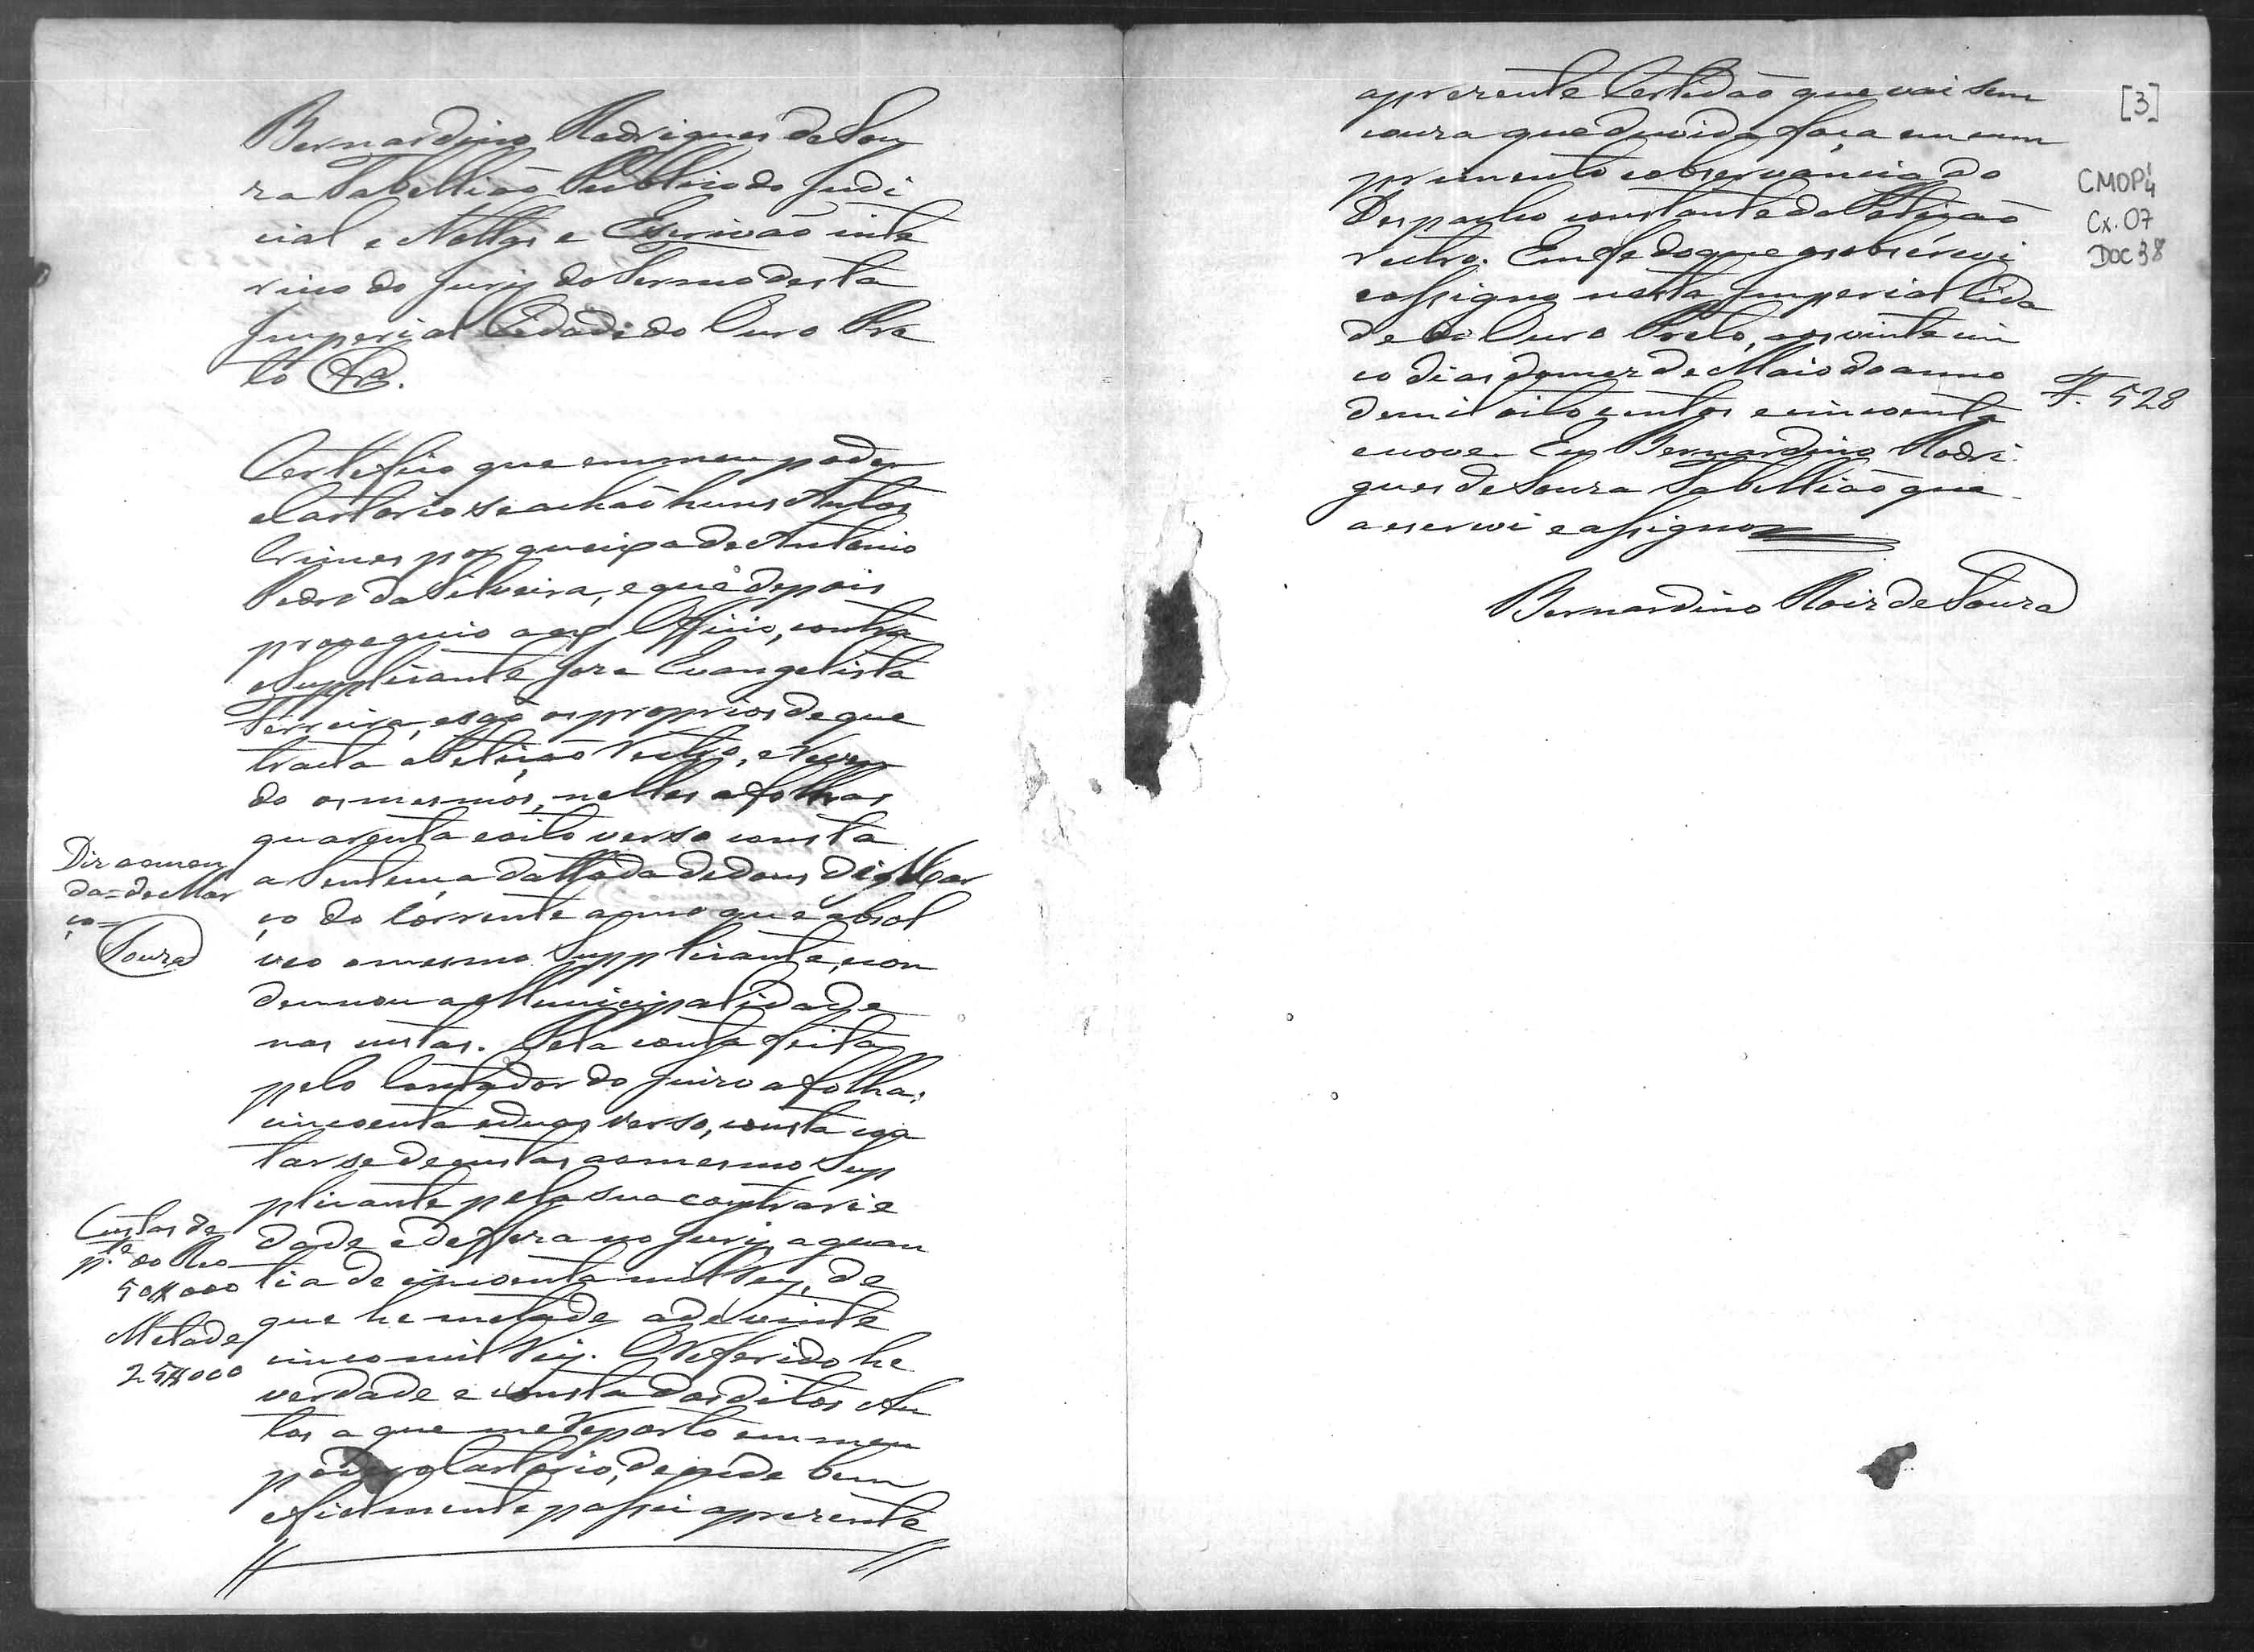 Bernardino Rodrigues de Sou
za Tabellião Publico do Judi
cial e Nottas e Escrivão inte
rino do Jury do Termo desta
Imperial Cidade do Ouro Pre
to &ª.
Certefico que em meu poder
e Cartorio se achão huns Autos
Crimes por queixa de Antonio
Pedro da Silveira, e que depois
proseguio a ex Officio, contra
o Supplicante José Evangelista
Ferreira, e são os proprios de que
tracta a Petição retro, e reven
do os mesmos, nelles a folhas
quarenta e oito verso consta
a Sentença dattada de dous de Mar
ço do corrente anno que absol
veo o mesmo Supplicante, e con
demnou a Municipalidade
nas custas. Pela conta feita
pelo Contador do Juizo a folhas
cincoenta e duas verso, consta con
tar se de custas ao mesmo Sup
plicante pela sua contrarie
dade e deffeza no Jury, a quan
tia de cincoenta mil reis, de
que he metade a de vinte
cinco mil reis. O referido he
verdade e consta dos ditos Au
tos a que me reporto em meu
poder e Cartorio, de onde bem
e fielmente passei a prezente
Diz a emen
da = de Mar
ço =
Souza
Custas de
p.te do Reo
50$000
Metade
25$000
a prezente Certidão que vai sem
couza que duvida faça em cum
primento e observancia do
Despacho constante da Petição
retro. Em fe do que a sobscrevi
e assigno nesta Imperial Cida
de do Ouro Preto, aos vinte cin
co dias do mez de Maio do anno
de mil oito centos e cincoenta
e nove. Eu Bernardino Rodri
gues de Souza Tabellião que
a escrevi e assigno
Bernardino Roiz de Souza
[3]
CMOP 4
Cx. 07
DOC 38
F. 528